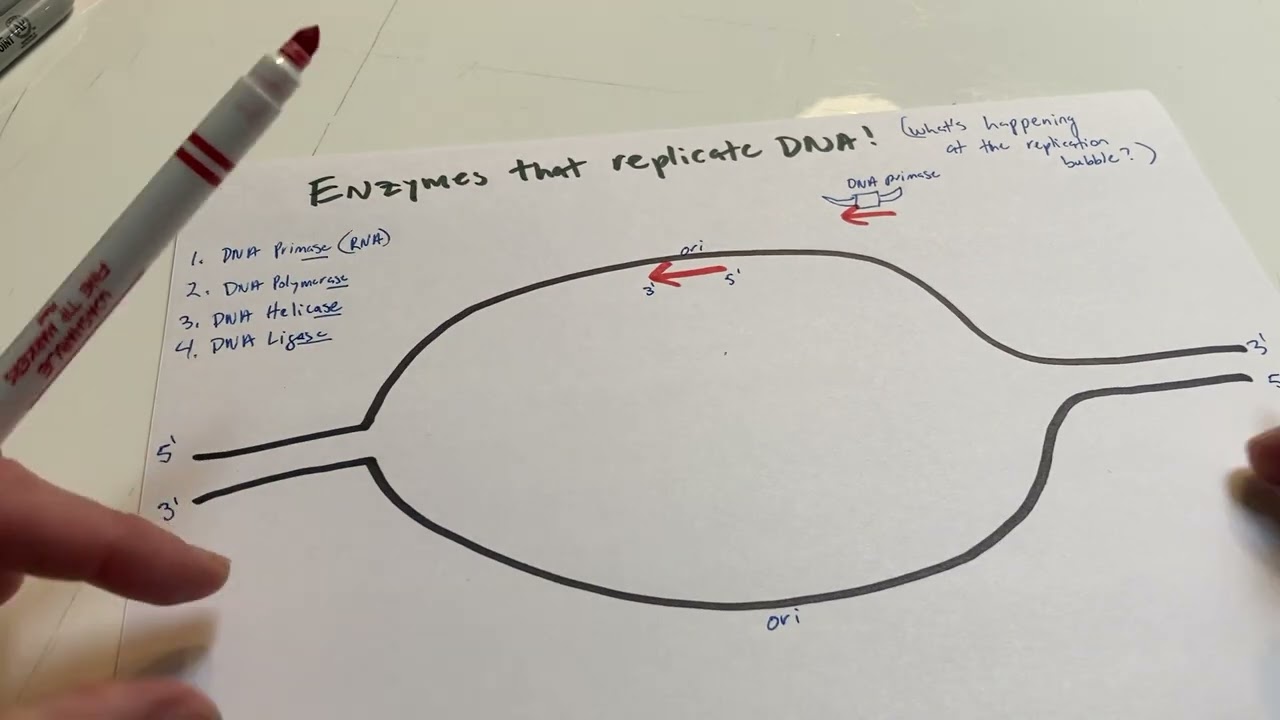 Enzymes that replicate DNA!
(What's happening
at the replication
bubble?)
DNA primase
1. DNA Primase (RNA)
2. DNA Polymerase
3. DNA Helicase
4. DNA Ligase
ori
3' 5'
3'
5
5'
3'
ori
WASHABLE
FINE TIP MARKERS
POINT
AP